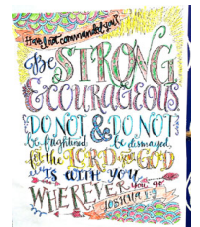 Have I not commanded you?
Be STRONG
& COURAGEOUS.
DO NOT & DO NOT
be frightened, be dismayed,
for the LORD your GOD
IS WITH YOU
WHEREVER you go.
JOSHUA 1:9